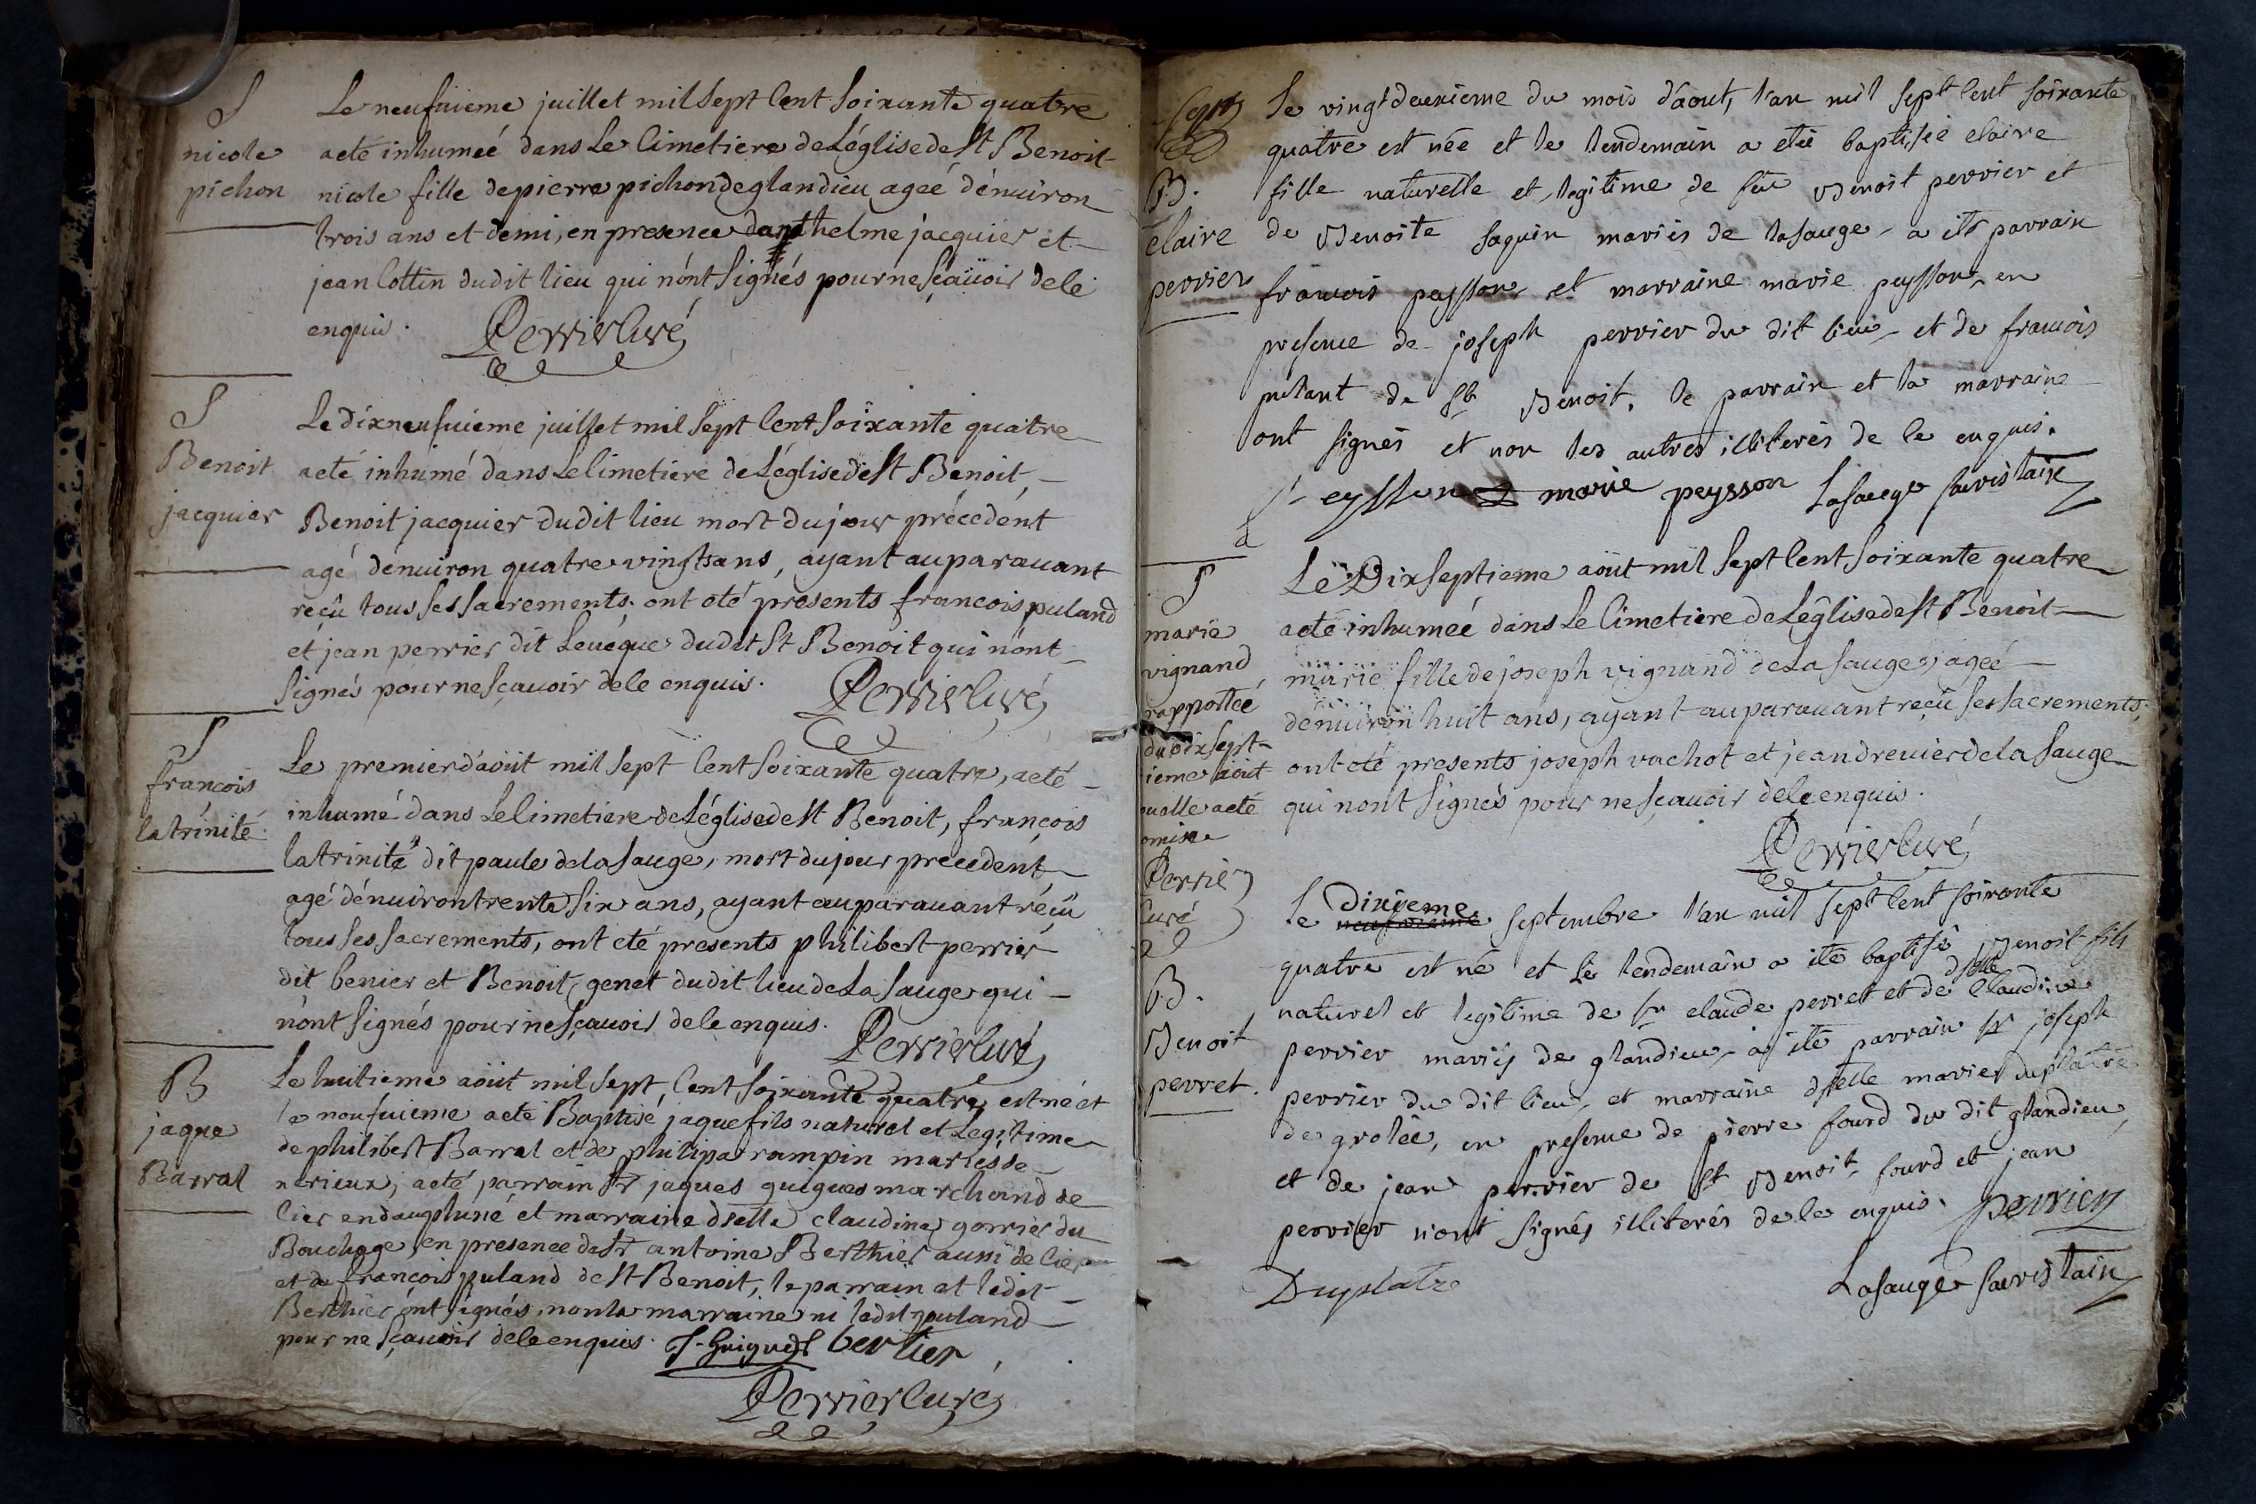 S
nicole
pichon
Le neufuieme juillet mil sept Cent soixante quatre
a eté inhumeé dans Le Cimetiere de L'église de st Benoit
nicole fille de pierre pichon de glandieu ageé d'enuiron
trois ans et demi, en presence d'anthelme jacquier et
jean Cottin dudit lieu qui n'ont signés pour ne sçauoir de ce
enquis. Perrier Curé
S
Benoit
jacquier
Le dix neufuieme juillet mil sept Cent soixante quatre
a eté inhumé dans Le Cimetiere de L'église de st Benoit,
Benoit jacquier dudit lieu mort du jour précedent
agé d'enuiron quatre vingts ans, ayant auparauant
reçu tous ses sacrements. ont eté presents francois puland
et jean perrier dit Leuéque dudit St Benoit qui n'ont
signés pour ne sçauoir de ce enquis. Perrier Curé
S
francois
la trinité
Le premier d'aout mil sept Cent soixante quatre, a eté
inhumé dans Le Cimetiere de L'église de st Benoit, françois
la trinité dit paule de la sauge, mort du jour precedent
agé d'enuiron trente six ans, ayant auparauant réçu
tous ses sacrements, ont eté presents philibert perrier
dit benier et Benoit genet dudit lieu de La sauge qui
n'ont signés pour ne sçauoir de ce enquis. Perrier Curé
B
jaque
Barral
Le huitieme août mil sept Cent soixante quatre est né et
le neufuieme a eté Baptisé jaque fils naturel et Legitime
de philibert Barral et de philipa rampin mariés de
nerieux, a eté parrain sr jaques guigues marchand de
Cier en dauphiné et marraine dselle claudine gorrier du
Bouchage en presence de sr antoine Berthier aussi de Cier
et de françois puland de st Benoit, le parrain et ledit
Berthier ont signés, non la marraine ni ledit puland
pour ne sçauoir de ce enquis. J. Guigues bertier
Perrier Curé
Sept
B.
claire
perrier
Le vingt deuxieme du mois d'aout, l'an mil sept cent soixante
quatre est née et le lendemain a eté baptisée claire
fille naturelle et legitime de feu Benoit perrier et
de Benoite saguin mariés de lasauge a eté parrain
francois peysson et marraine marie peysson, en
presence de joseph perrier du dit lieu et de francois
pulant de st Benoit, le parrain et la marraine
ont signés et non les autres illiterés de ce enquis.
Peysson marie peysson Lasauge sacristain
S
marie
vignand
rapportée
du dix sept-
ieme août
ou elle a eté
omise
Perrier
Curé
Le Dix septieme août mil sept Cent soixante quatre
a eté inhumeé dans Le Cimetiere de L'église de st Benoit
marie fille de joseph vignand de La sauge, ageé
d'enuiron huit ans, ayant auparauant reçu ses sacrements,
ont eté presents joseph vachot et jean dreuier de la sauge
qui n'ont signés pour ne sçauoir de ce enquis.
Perrier Curé
B.
Benoit
perret.
Le dixieme septembre l'an mil sept cent soixante
quatre est né et le lendemain a eté baptisé Benoit fils
naturel et legitime de sr claude perret et de dselle Claudine
perrier mariés de glandieu, a eté parrain sr joseph
perrier du dit lieu, et marraine dselle marie duplatre
de grolée, en presence de pierre fourd du dit glandieu,
et de jean perrier de st Benoit, fourd et jean
perrier n'ont signés illiterés de ce enquis. perrier
Duplatre Lasauge sacristain